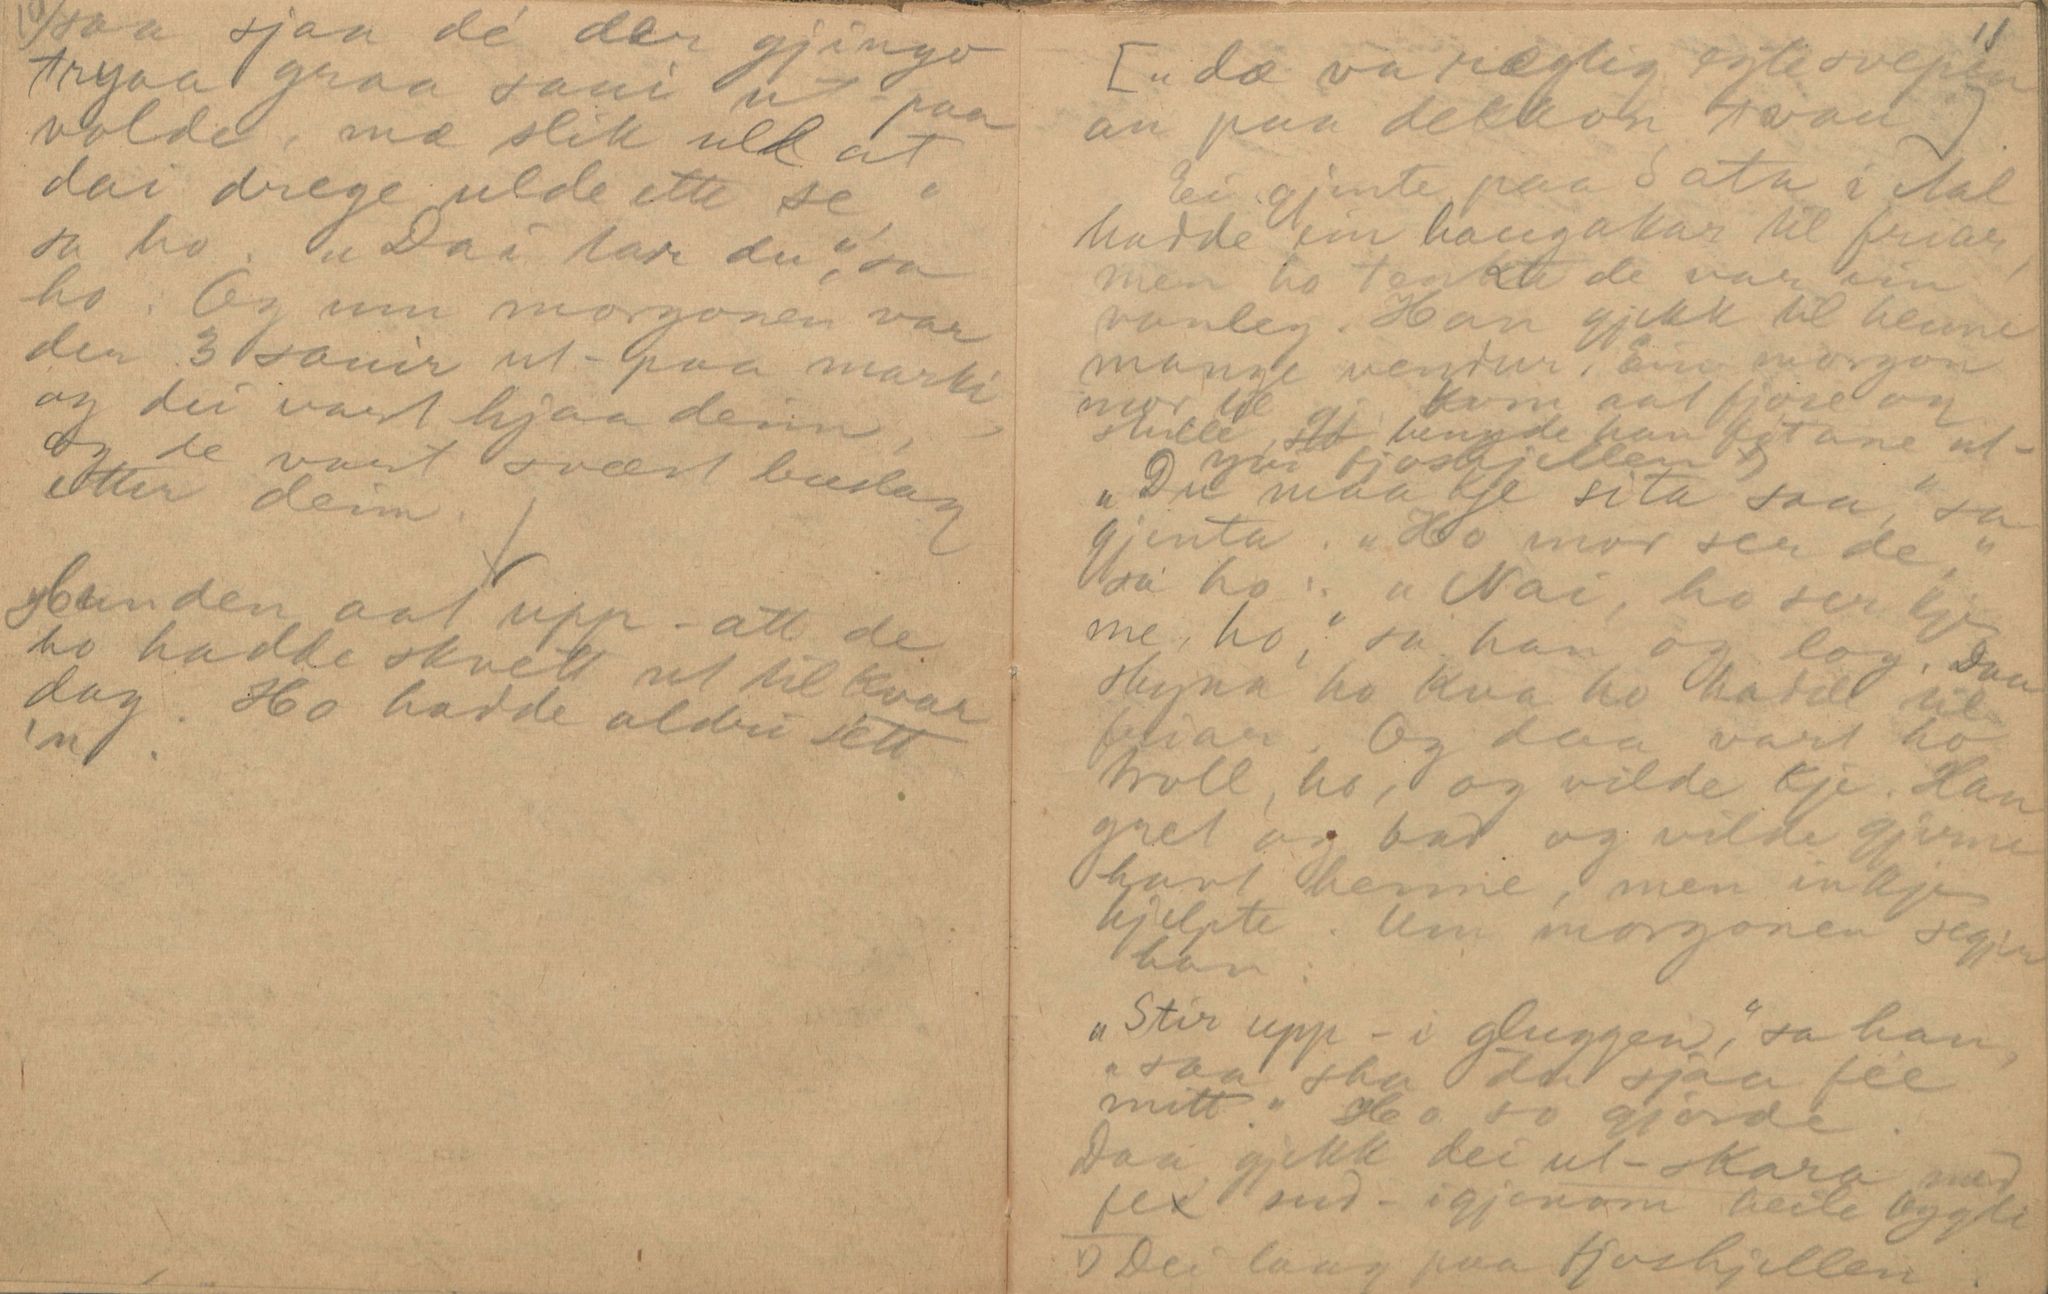 10/ saa sjaa dé der gjingo
tryaa graa saui ut - paa
volde, mæ slik ull at
dai drege ulde ette se,"
sa ho. „Dai tar du," sa
ho. Og um morgonen var
der 3 sauir ut - paa marki
og dei vart hjaa deim,
og de vart svært buslag
etter deim.
Hunden aat upp - att de
ho hadde skvett ut til kvar
dag. Ho hadde aldri sett
'n.
11
[„dæ va rægtig
an paa dekkon, svau]
Ei gjente paa Sata i Aal
hadde ein haugakar til friar,
men ho tenkte de var ein
vanleg. Han gjekk til henne
mange vendur. Ein morgon
mor til gj. kom aat fjose og
stulle, hengde han føtane ut-
yvi fjoshjellen 1)
„Du maa kje sita saa," sa
gjenta. „Ho mor ser de,"
sa ho. „Nai, ho ser kje
me, ho," sa han og log. Daa
skyna ho kva ho hadde til
friar. Og daa vart ho
troll, ho, og vilde kje. Han
gret og bad og vilde gjerne
havt henne, men inkje
hjelpte. Um morgonen segjer
han:
„Stir upp - i gluggen," sa han,
„saa ska du sjaa fée
mitt." Ho so gjorde.
Daa gjekk dei ut - skara med
fe sud - igjenom heile bygdi
1) Dei laag paa fjoshjellen.